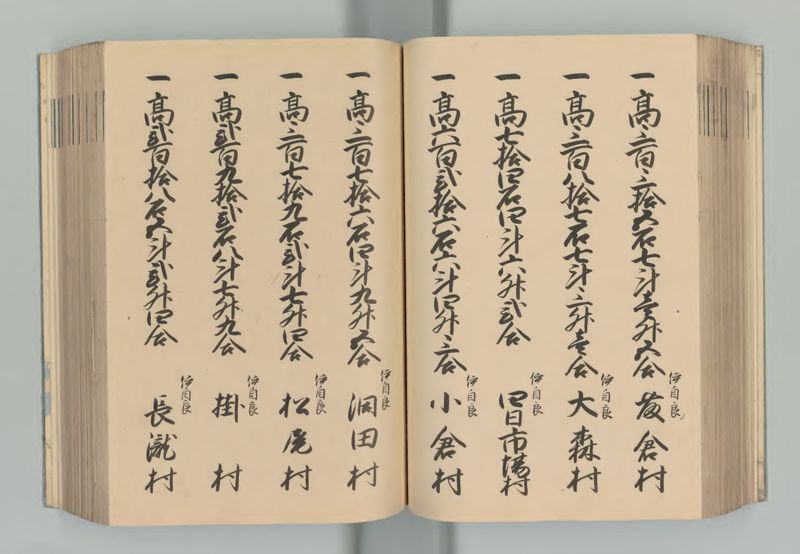 一高三百三拾五石七斗壱升五合 伊自良 藤倉村
一高三百八拾七石七斗三升壱合 伊自良 大森村
一高七拾四石四斗六升弐合 伊自良 四日市場村
一高六百弐拾六石六斗四升三合 伊自良 小倉村
一高三百七拾六石四斗九升五合 伊自良 洞田村
一高三百七拾九石弐斗七升四合 伊自良 松尾村
一高弐百九拾弐石八斗七升九合 伊自良 掛村
一高弐百拾八石五斗弐升四合 伊自良 長瀧村